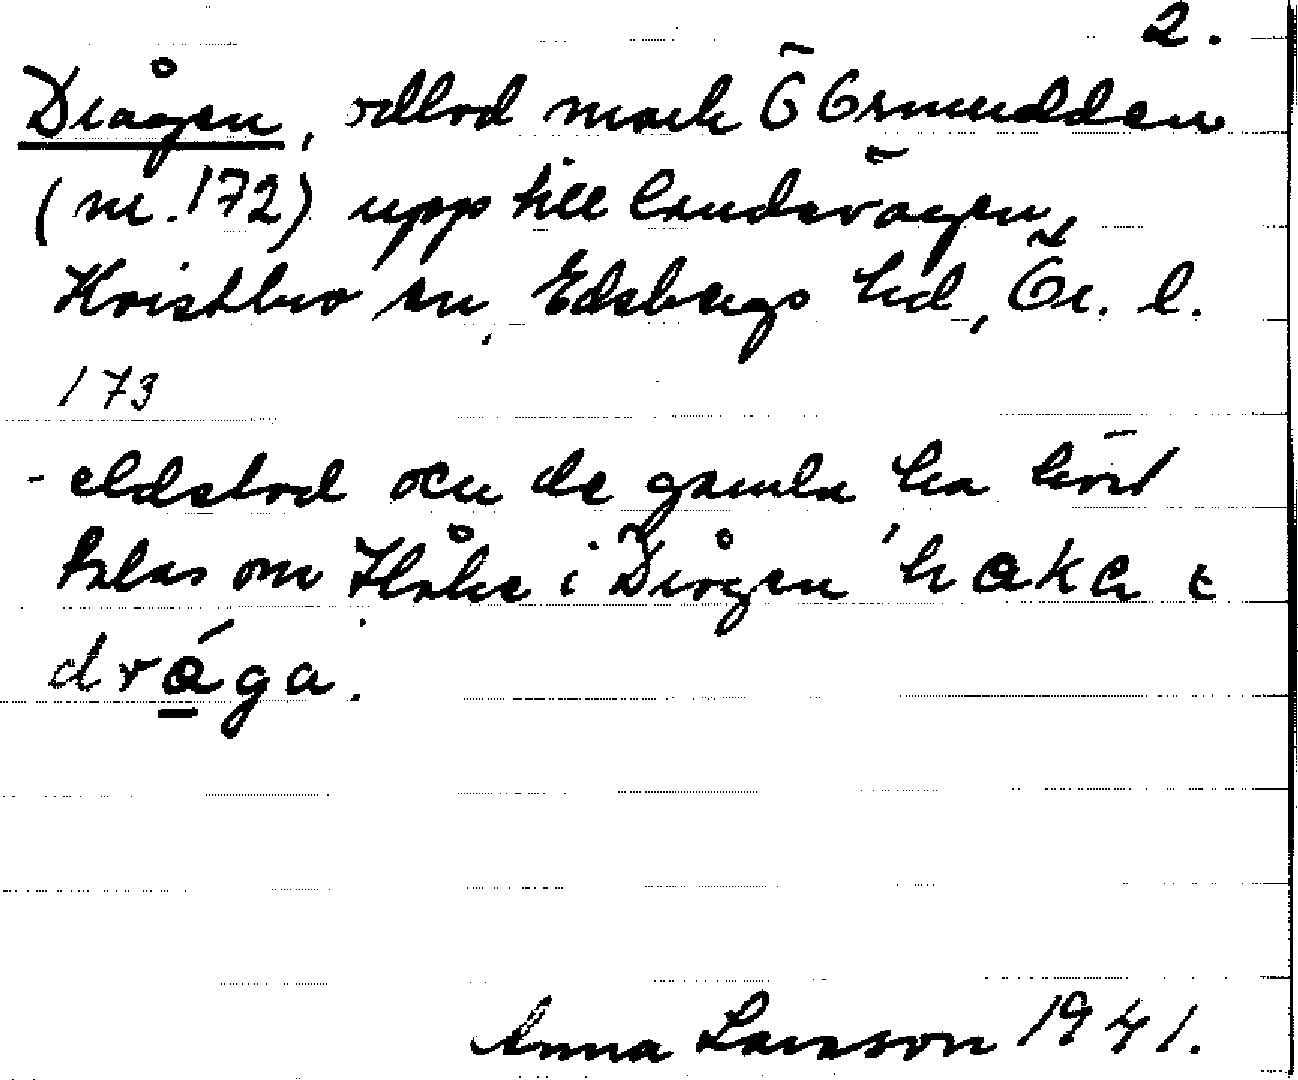 2.
Drågen, odlad mark Ö Ormudden
(nr. 172) upp till landsvägen,
Kvistbro sn, Edsbergs hd, Ör. l.
173
- eldstad och de gamla ha hört
talas om Håke i Drågen haka i
dråga.
Anna Larsson 1941.